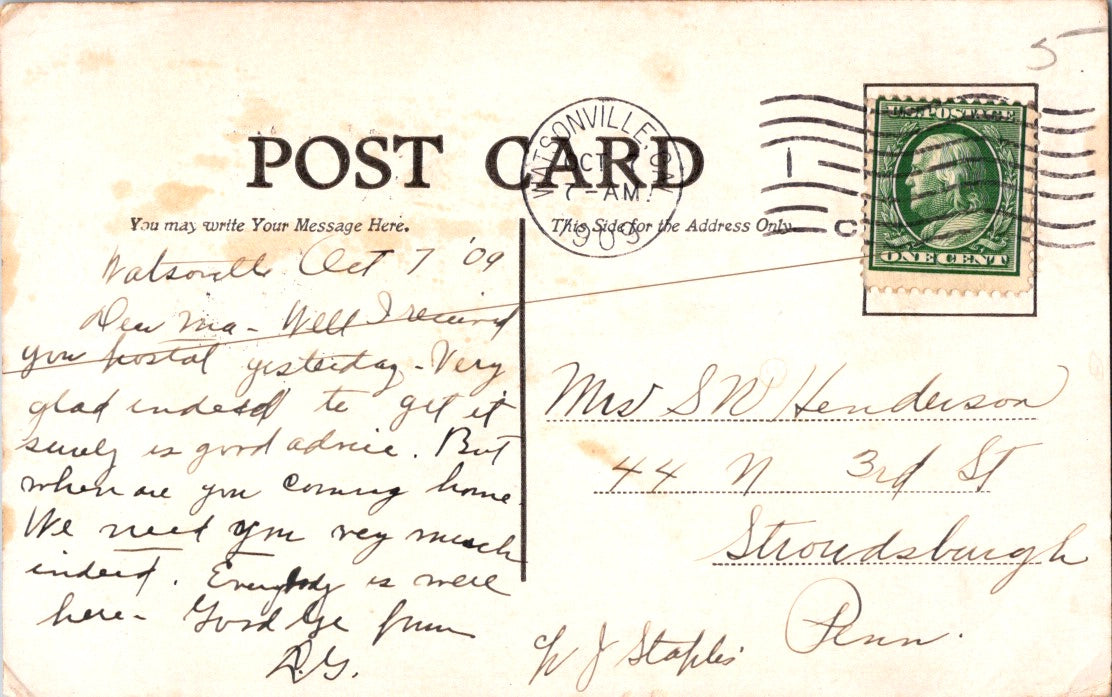 5
POST CARD
WATSONVILLE, CAL.
OCT
7 - AM.
1909
1
C
U.S. POSTAGE
ONE CENT
You may write Your Message Here.
This Side for the Address Only.
Watsonville Oct 7 '09
Dear Ma - Well I received
your postal yesterday - Very
glad indeed to get it
surely is good advice. But
when are you coming home.
We need you very much
indeed. Everybody is well
here - Good bye from
D.G.
Mrs S W Henderson
44 N 3rd St
Stroudsburgh
Penn.
J Staples